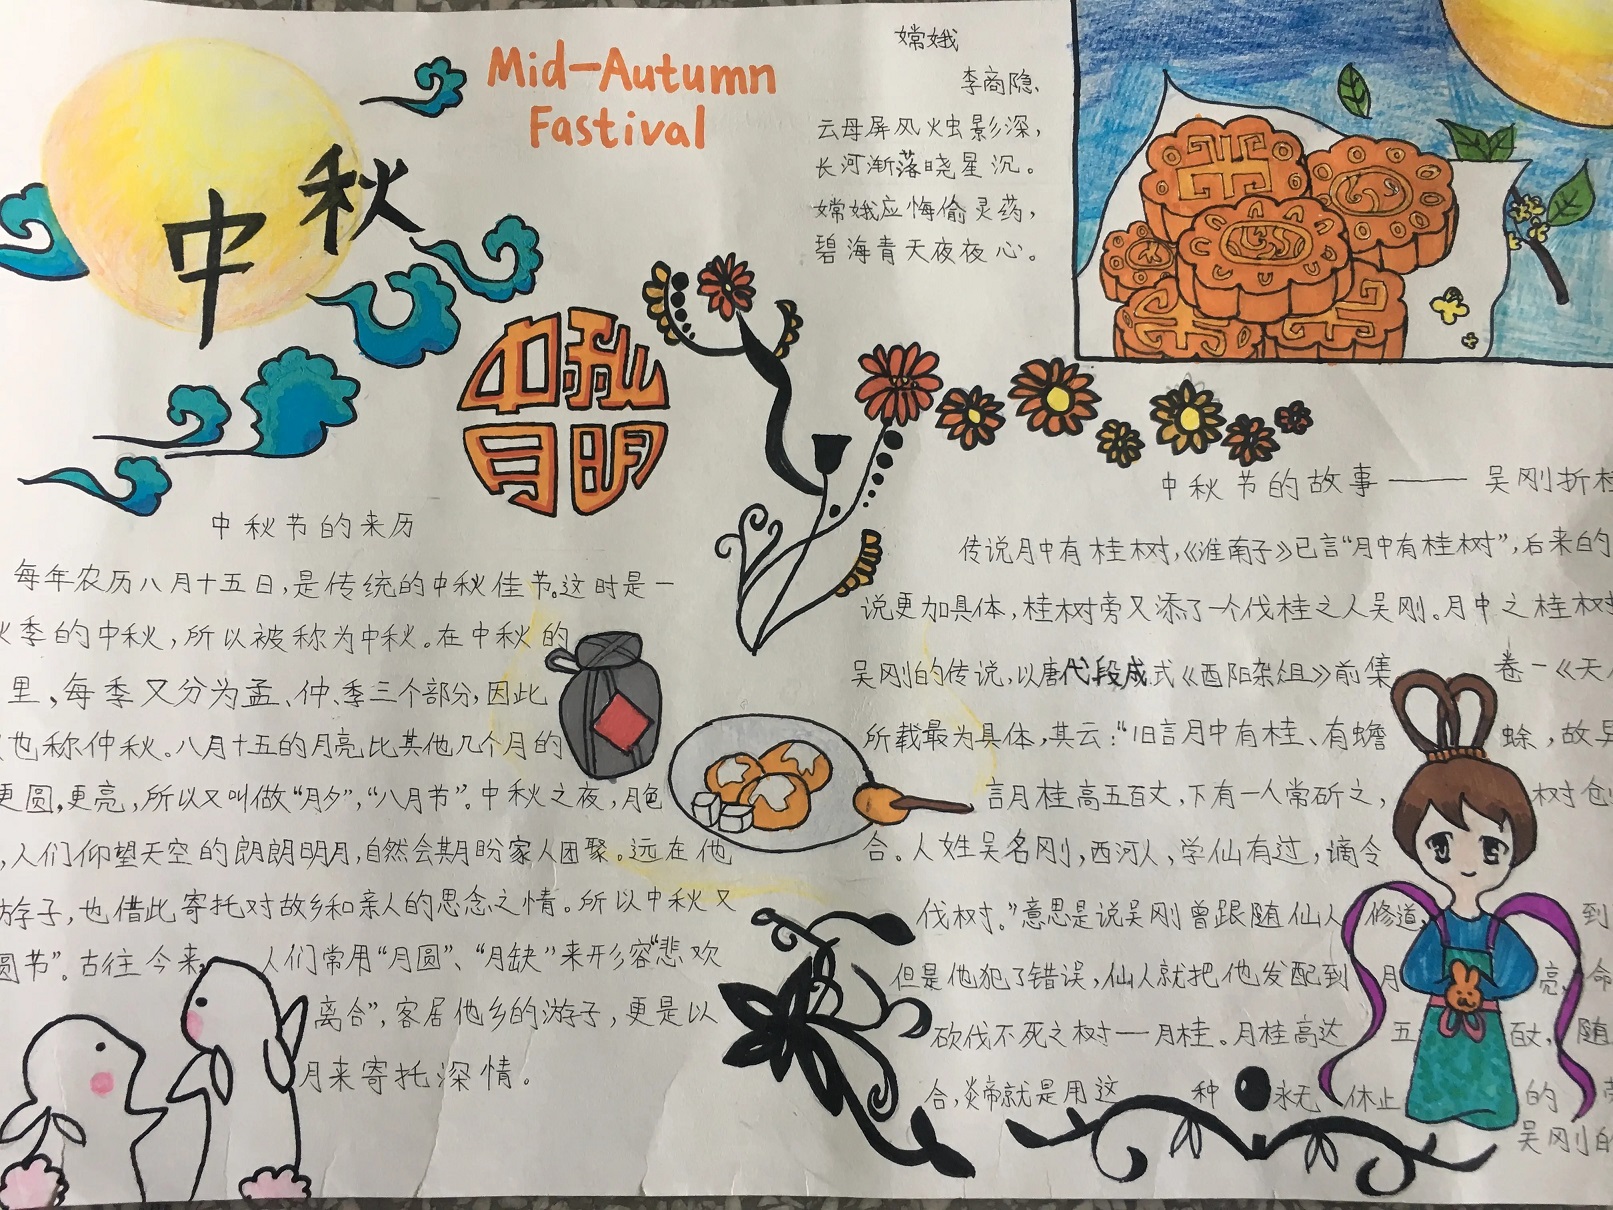 中秋
Mid-Autumn
Fastival
嫦娥
李商隐
云母屏风烛影深，
长河渐落晓星沉。
嫦娥应悔偷灵药，
碧海青天夜夜心。
中秋
月明
中秋节的来历
每年农历八月十五日，是传统的中秋佳节。这时是一
季的中秋，所以被称为中秋。在中秋的
里，每季又分为孟、仲、季三个部分，因此
也称仲秋。八月十五的月亮比其他几个月的
更圆，更亮，所以又叫做“月夕”，“八月节”。中秋之夜，月色
，人们仰望天空的朗朗明月，自然会期盼家人团聚。远在他
游子，也借此寄托对故乡和亲人的思念之情。所以中秋又
圆节”。古往今来 人们常用“月圆”、“月缺”来形容“悲欢
离合”，客居他乡的游子，更是以
月来寄托深情。
中秋节的故事——吴刚折桂
传说月中有桂树，《淮南子》已言“月中有桂树”，后来的
说更加具体，桂树旁又添了一个伐桂之人吴刚。月中之桂树
吴刚的传说，以唐代段成式《酉阳杂俎》前集 卷一《天
所载最为具体，其云：“旧言月中有桂、有蟾 蜍，故异
言月桂高五百丈，下有一人常斫之， 树创
合。人姓吴名刚，西河人，学仙有过，谪令
伐树。”意思是说吴刚曾跟随仙人 修道， 到
但是他犯了错误，仙人就把他发配到 月 亮，命
砍伐不死之树——月桂。月桂高达 五 百丈，随
合，炎帝就是用这 种 永无 休止 的
吴刚的